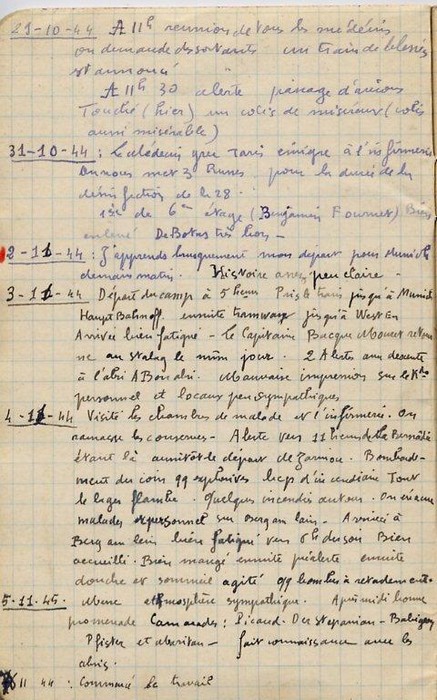 29-10-44 A 11h reunion de tous les médecins
on demande des sortants un train de blessés
est annoncé
A 11h 30 alerte passage d'avions
Touché (hier) un colis de misereux (colis
aussi misérable)
31-10-44 : Le Médecin grec émigre à l'infirmerie
On nous met 3 Russes pour la durée de la
désinfection de la 28.
de 6e étage (Benjamin Fournet) Bien
De Botas très bon -
2-11-44 : J'apprends brusquement mon départ pour Munich
demain matin. Histoire assez peu claire -
3-11-44 Départ du camp à 5 heures Pris le train jusqu'à Munich
Haupt Bahnoff. ensuite tramway jusqu'à West En
Arrivée bien fatigué - Le Capitaine Bacque Mouret retour
ne au stalag le même jour. 2 Alertes on descente
à l'abri A Bon abri. Mauvaise impression sur le
personnel et locaux peu sympathiques
4-11-44 Visité les chambres de malade et l'infirmerie. On
ramasse les conserves - Alerte vers 11 heures
étant là aussitôt le départ de Bombarde-
ment du coin 99 explosives bcp d'incendiaire Tout
le lager flambe. Quelques incendies autour. On évacue
malades et personnel sur Berg am laim. Arrivée à
Berg am laim bien fatigué vers 6h du soir Bien
accueilli. Bien mangé ensuite préalerte ensuite
douche et sommeil agité 99 bombes à retardement.
5.11.45. Messe atmosphère sympathique. Après midi bonne
promenade Camarades : Picaud. Der Stepanian -
Pfister et - fait connaissance avec les
abris.
6 11 44 : Commencé le travail